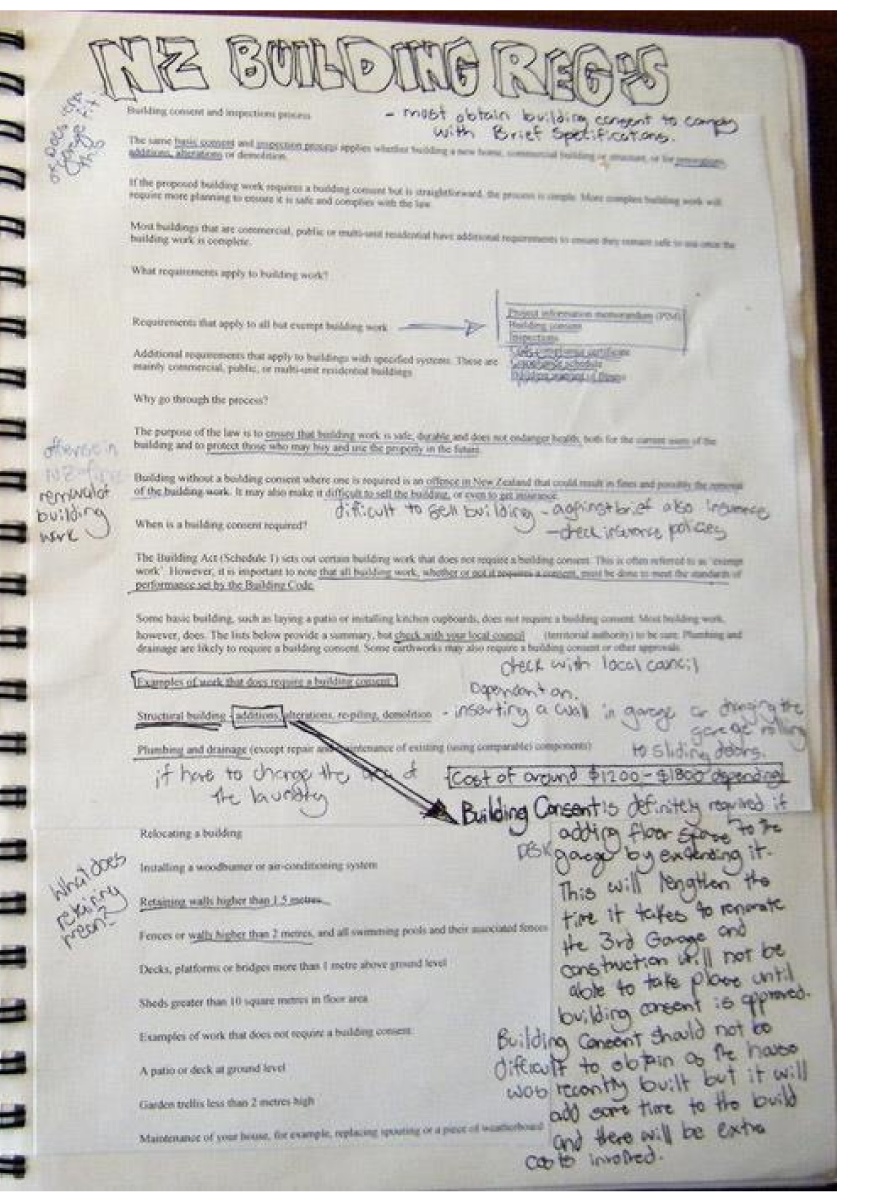 NZ BUILDING REG'S
Building consent and inspections process
- must obtain building consent to comply
with Brief Specifications.
The same basic consent and inspection process applies whether building a new home, commercial building or structure, or for renovations,
additions, alterations or demolition.
If the proposed building work requires a building consent but is straightforward, the process is simple. More complex building work will
require more planning to ensure it is safe and complies with the law.
Most buildings that are commercial, public or multi-unit residential have additional requirements to ensure they remain safe to use once the
building work is complete.
What requirements apply to building work?
Project information memorandum (PIM)
Building consent
Inspections
Code compliance certificate
Compliance schedule
Building warrant of fitness
Requirements that apply to all but exempt building work
Additional requirements that apply to buildings with specified systems. These are
mainly commercial, public, or multi-unit residential buildings
Why go through the process?
The purpose of the law is to ensure that building work is safe, durable and does not endanger health, both for the current users of the
building and to protect those who may buy and use the property in the future.
offense in
NZ
removal of
building
work
Building without a building consent where one is required is an offence in New Zealand that could result in fines and possibly the removal
of the building work. It may also make it difficult to sell the building, or even to get insurance.
difficult to sell building - against brief also insurance
- check insurance policies
When is a building consent required?
The Building Act (Schedule 1) sets out certain building work that does not require a building consent. This is often referred to as 'exempt
work'. However, it is important to note that all building work, whether or not it requires a consent, must be done to meet the standards of
performance set by the Building Code.
Some basic building, such as laying a patio or installing kitchen cupboards, does not require a building consent. Most building work,
however, does. The lists below provide a summary, but check with your local council (territorial authority) to be sure. Plumbing and
drainage are likely to require a building consent. Some earthworks may also require a building consent or other approvals.
check with local council
Examples of work that does require a building consent
Dependant on.
Structural building - additions, alterations, re-piling, demolition - inserting a wall in garage or changing the
garage rolling
to sliding doors.
Plumbing and drainage (except repair and maintenance of existing (using comparable) components)
if have to change the of
the laundry
Cost of around $1200 - $1800 depending
Building Consent is definitely required if
adding floor space to the
garage by extending it.
This will lengthen the
time it takes to renovate
the 3rd Garage and
construction will not be
able to take place until
building consent is approved.
Building Consent should not be
difficult to obtain as the house
was recently built but it will
add some time to the build
and there will be extra
costs involved.
Relocating a building
Installing a woodburner or air-conditioning system
What does
retaining
mean?
Retaining walls higher than 1.5 metres
Fences or walls higher than 2 metres, and all swimming pools and their associated fences
Decks, platforms or bridges more than 1 metre above ground level
Sheds greater than 10 square metres in floor area
Examples of work that does not require a building consent
A patio or deck at ground level
Garden trellis less than 2 metres high
Maintenance of your house, for example, replacing spouting or a piece of weatherboard